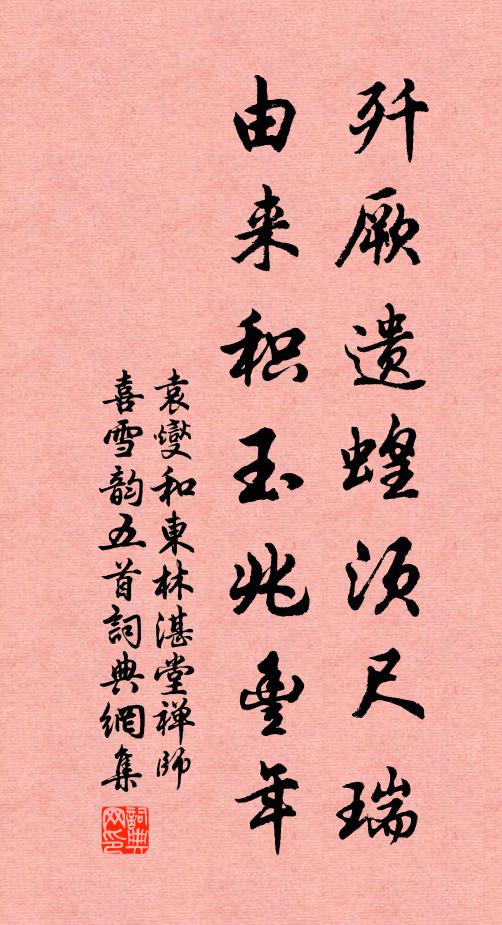 歼厥遗蝗须尺瑞
由来积玉兆豊年
袁燮和東林湛堂禅師
喜雪韵五首詞典網集
詞典网印